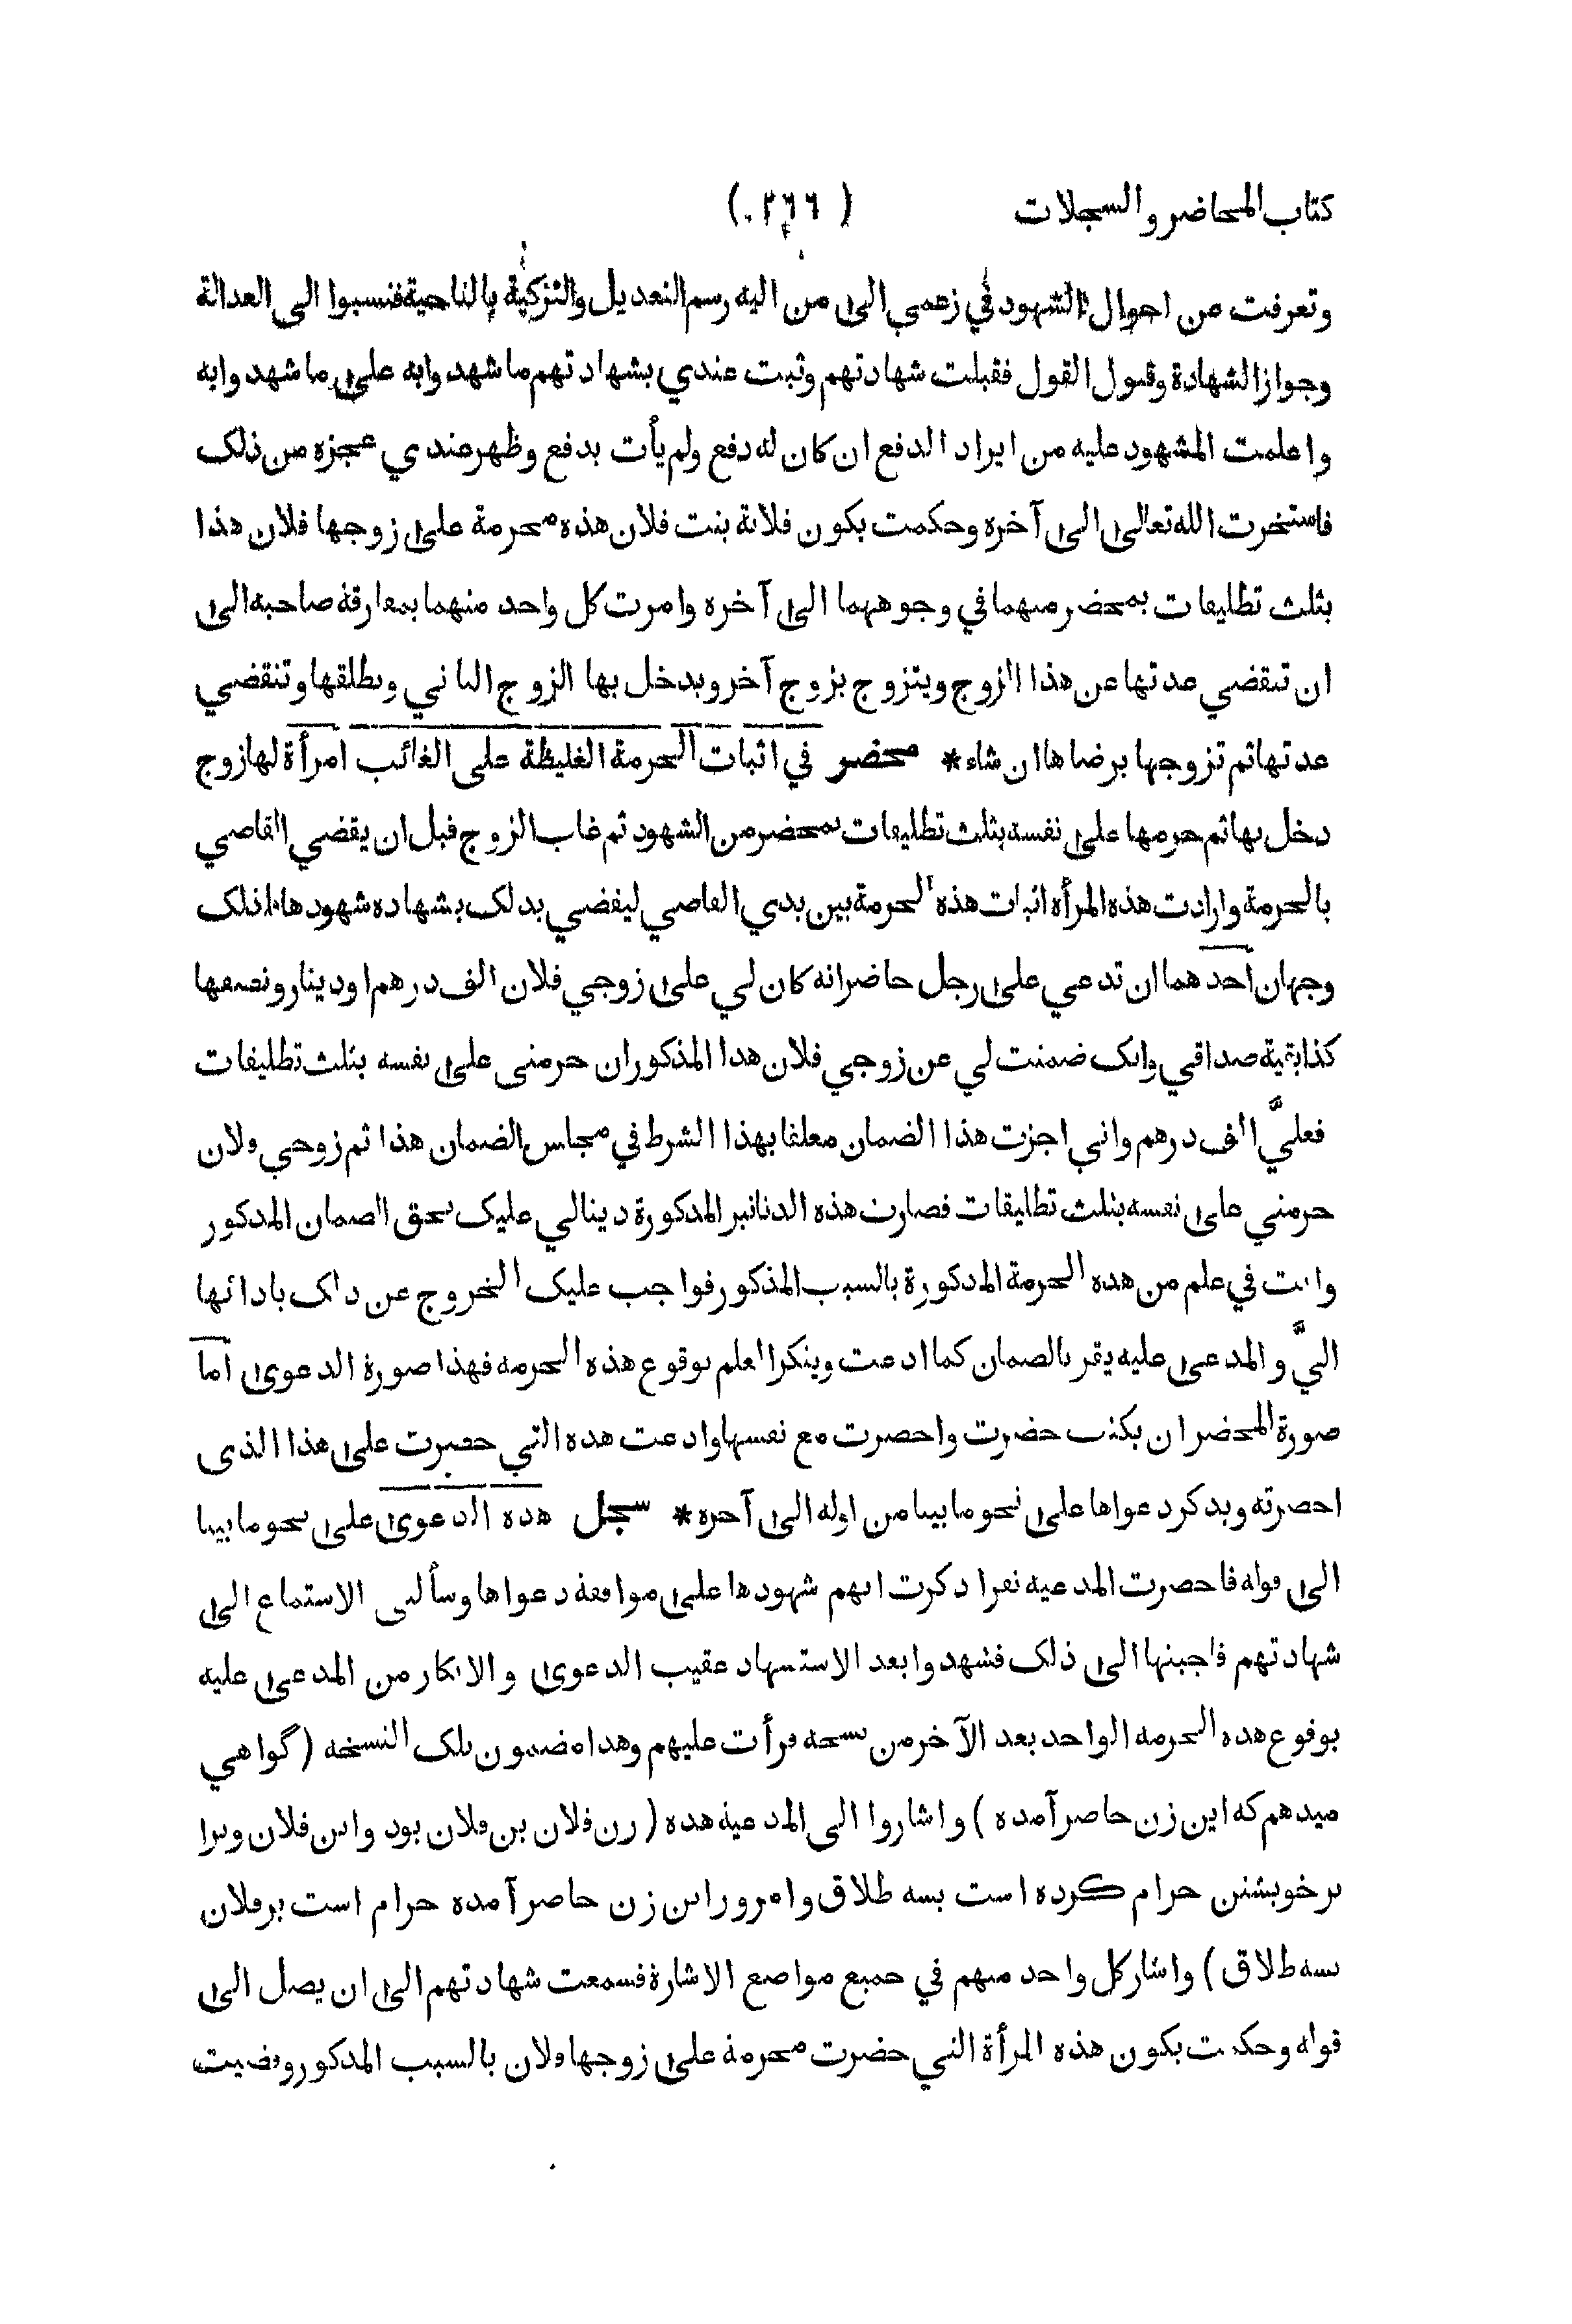 كتاب المحاضر والسجلات (٢٦٦)
وتعرفت من احوال الشهود في زعمي الى من اليه رسم التعديل والتزكية بالناحية فنسبوا الى العدالة
وجواز الشهادة وقبول القول فقبلت شهادتهم وثبت عندي بشهادتهم ما شهدوا به على ما شهدوا به
واعلمت المشهود عليه من ايراد الدفع ان كان له دفع ولم يأت بدفع وظهر عندي عجزه من ذلك
فاستخرت الله تعالى الى آخره وحكمت بكون فلانة بنت فلان هذه محرمة على زوجها فلان هذا
بثلث تطليقات بمحضر منهما في وجوههما الى آخره وامرت كل واحد منهما بمفارقة صاحبه الى
ان تنقضي عدتها عن هذا الزوج ويتزوج بزوج آخر ويدخل بها الزوج الثاني ويطلقها وتنقضي
عدتها ثم تزوجها برضاها ان شاء * محضر في اثبات الحرمة الغليظة على الغائب امرأة لها زوج
دخل بها ثم حرمها على نفسه بثلث تطليقات بمحضر من الشهود ثم غاب الزوج قبل ان يقضي القاضي
بالحرمة وارادت هذه المرأة اثبات هذه الحرمة بين يدي القاضي ليقضي بذلك بشهادة شهودها فلذلك
وجهان احدهما ان تدعي على رجل حاضر انه كان لي على زوجي فلان الف درهم او دينار ونصفها
كذا بقية صداقي وانك ضمنت لي عن زوجي فلان هذا المذكور ان حرمني على نفسه بثلث تطليقات
فعليَّ الف درهم واني اجزت هذا الضمان معلقا بهذا الشرط في مجلس الضمان هذا ثم زوجي فلان
حرمني على نفسه بثلث تطليقات فصارت هذه الدنانير المذكورة دينا لي عليك بحق الضمان المذكور
وانت في علم من هذه الحرمة المذكورة بالسبب المذكور فواجب عليك الخروج عن ذلك بادائها
اليَّ والمدعى عليه يقر بالضمان كما ادعت وينكر العلم بوقوع هذه الحرمة فهذا صورة الدعوى اما
صورة المحضر ان يكتب حضرت واحضرت مع نفسها وادعت هذه التي حضرت على هذا الذي
احضرته ويذكر دعواها على نحو ما بينا من اوله الى آخره * سجل هذه الدعوى على نحو ما بينا
الى قوله فاحضرت المدعية نفرا ذكرت انهم شهودها على موافقة دعواها وسألني الاستماع الى
شهادتهم فاجبتها الى ذلك فشهدوا بعد الاستشهاد عقيب الدعوى والانكار من المدعى عليه
بوقوع هذه الحرمة الواحد بعد الآخر من نسخة قرأت عليهم وهذا مضمون تلك النسخة (گواهي
ميدهم كه اين زن حاضر آمده) واشاروا الى المدعية هذه (زن فلان بن فلان بود واين فلان ويرا
بر خويشتن حرام كرده است بسه طلاق وامروز اين زن حاضر آمده حرام است بر فلان
بسه طلاق) واشار كل واحد منهم في جميع مواضع الاشارة فسمعت شهادتهم الى ان يصل الى
قوله وحكمت بكون هذه المرأة التي حضرت محرمة على زوجها فلان بالسبب المذكور وقضيت